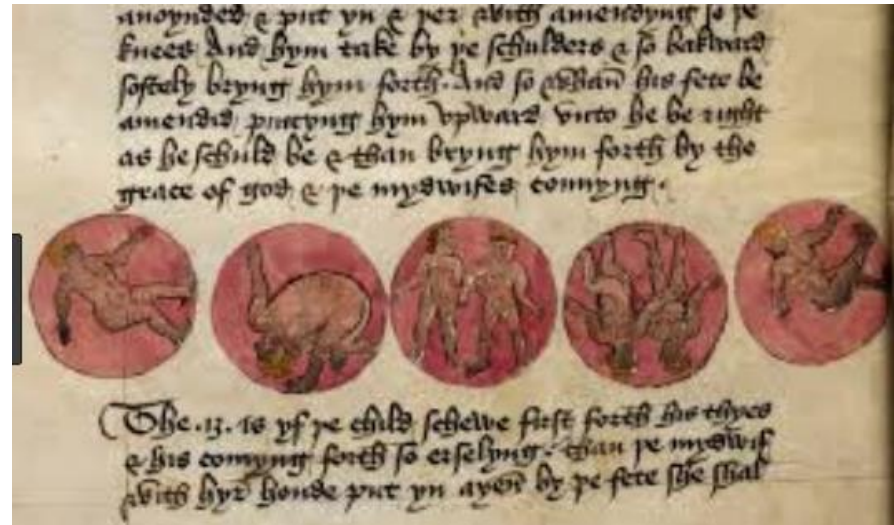 anoynded & put yn & þer with amendyng so þe
knees And hym take by þe schulders & so bakward
softely bryng hym forth. And so whan his fete be
amendid, puttyng hym vpward vnto he be right
as he schuld be & than bryng hym forth by the
grace of god & þe mydwifes connyng.
The .13. is yf þe child schewe first forth his thyes
& his comyng forth so erselyng. than þe mydwif
with hyr honde put yn ayen by þe fete she shal